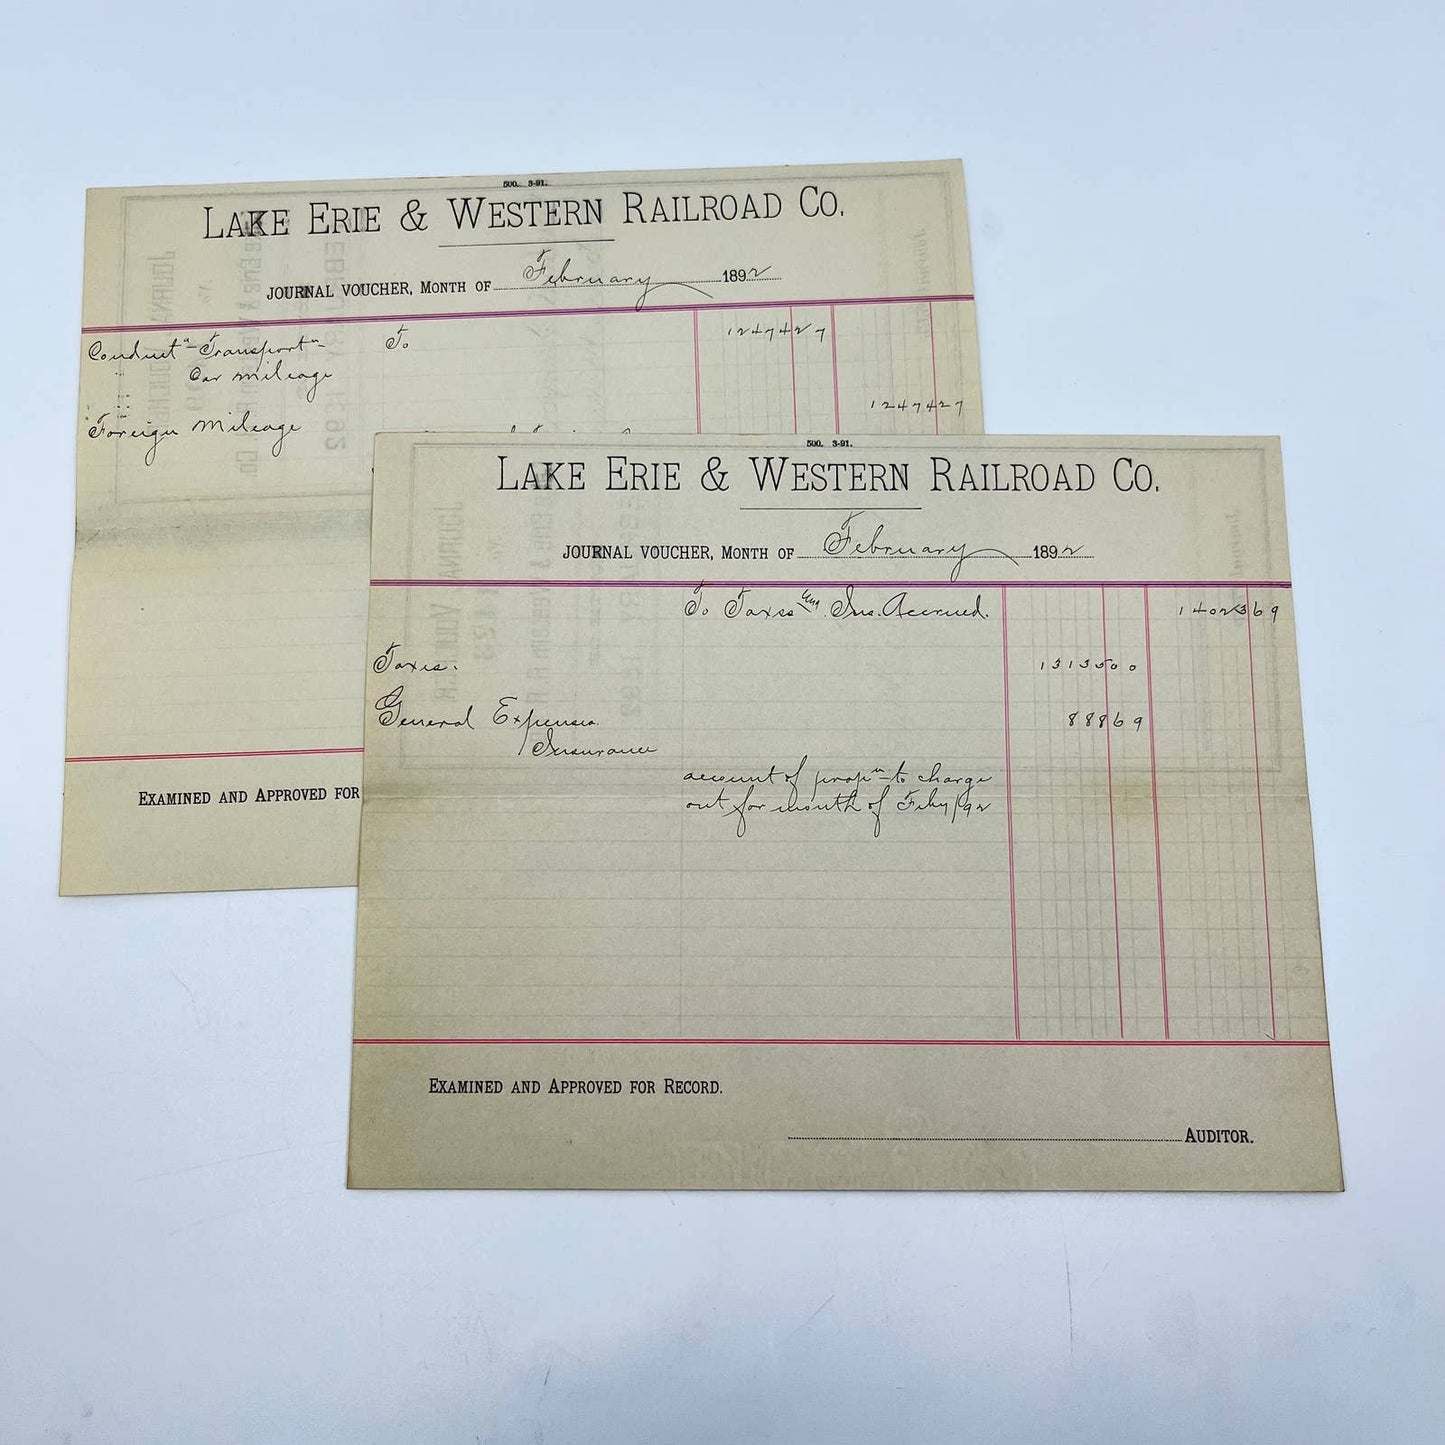 500. 3-91.
LAKE ERIE & WESTERN RAILROAD CO.
JOURNAL VOUCHER, MONTH OF February 1892
Conduct'n Transport'n To 12474 27
" Car mileage
12474 27
Foreign Mileage
EXAMINED AND APPROVED FOR
500. 3-91.
LAKE ERIE & WESTERN RAILROAD CO.
JOURNAL VOUCHER, MONTH OF February 1892
To Taxes Ins. Accrued. 14023 69
Taxes. 13135 00
General Expenses 888 69
Insurance
account of prop'n to charge
out for month of Feby/92
EXAMINED AND APPROVED FOR RECORD.
AUDITOR.